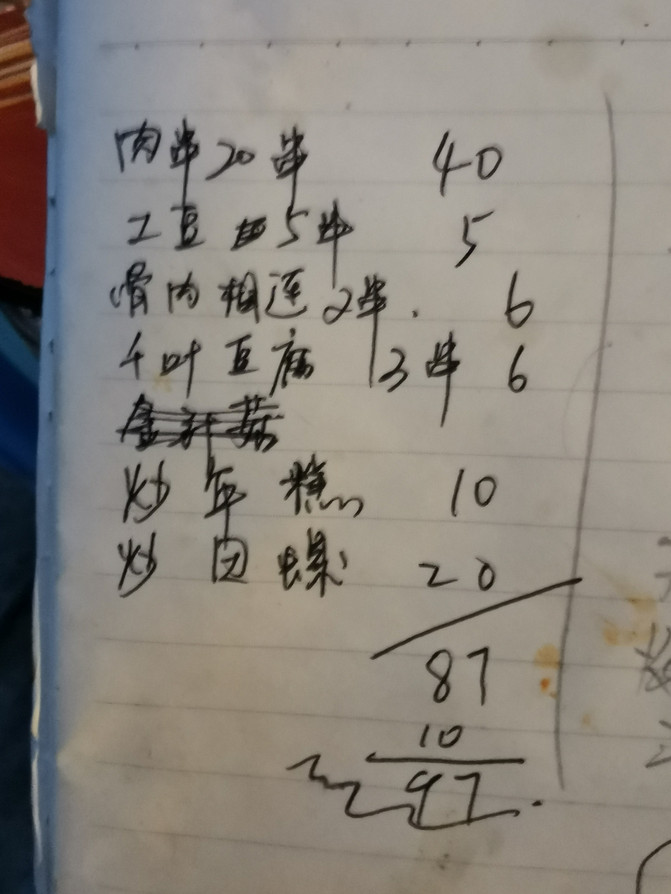 肉串20串 40
工豆 5串 5
骨肉相连2串. 6
千叶豆腐 3串 6
金针菇
炒年糕 10
炒田螺 20
87
10
97.